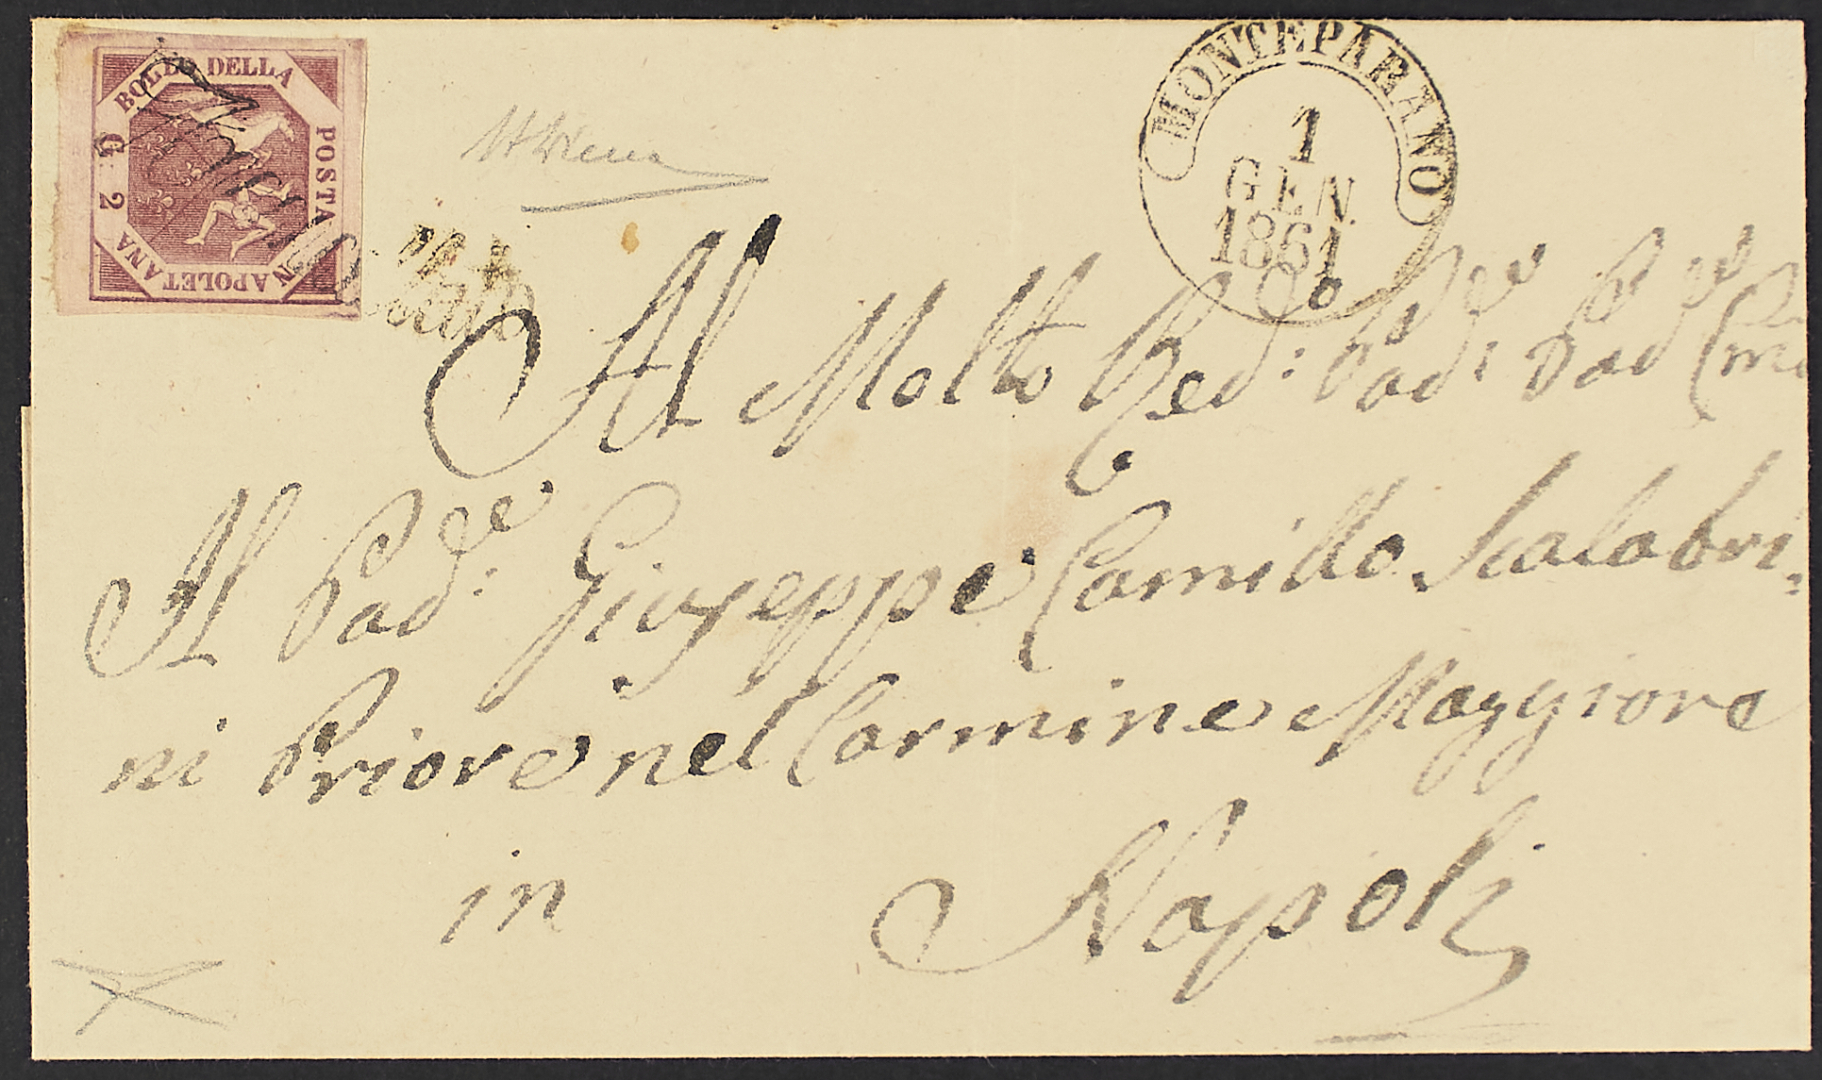 BOLLO DELLA
POSTA
NAPOLETANA
G. 2
MONTEPARANO
1
GEN
1861
Al Molto Red: Pad:ʳᵉ Pad
Al Pad:ʳᵉ Giuseppe Camillo Scalabri:
ni Priore nel Carmine Maggiore
in Napoli